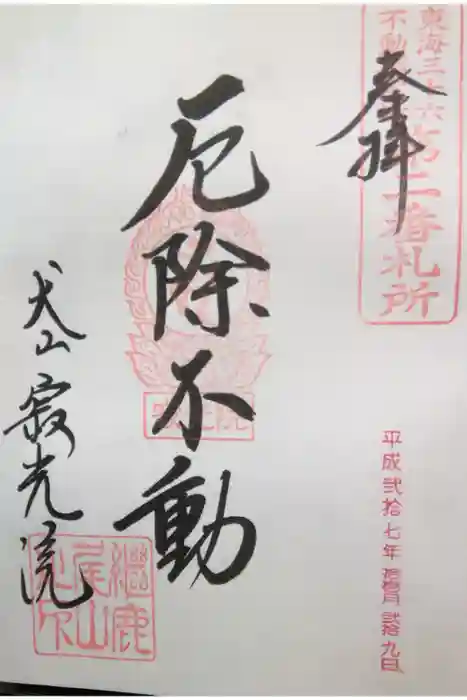 東海三十六
不動
第二番札所
奉拝
厄除不動
犬山寂光院
平成弐拾七年
弐拾九日
継鹿
尾山